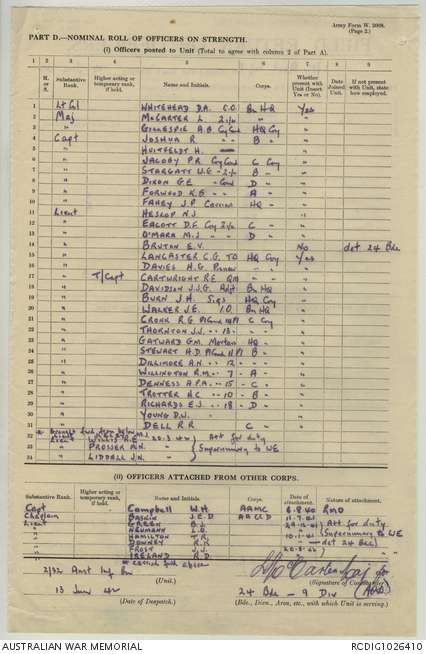 Army Form W. 3008.
(Page 2.)
PART D.—NOMINAL ROLL OF OFFICERS ON STRENGTH.
(i) Officers posted to Unit (Total to agree with column 2 of Part A).
1 2 3 4 5 6 7 8 9
M. or S. Substantive Rank. Higher acting or temporary rank, if held. Name and Initials. Corps. Whether present with Unit (Insert Yes or No). Date Joined Unit. If not present with Unit, state how employed.
1 Lt Col WHITEHEAD D.A. C.O. Bn HQ Yes
2 Maj McCARTER L. 2i/c " "
3 " GILLESPIE A.B. Coy Comd HQ Coy "
4 Capt JOSHUA R " B " "
5 " HUITFELDT H. "
6 " JACOBY P.R. Coy Comd C Coy "
7 " STARGATT U.G. 2i/c B " "
8 " DIXON G.E. Comd D " "
9 " FORWOOD K.B. " A " "
10 " FAHEY J.P Carriers HQ " "
11 Lieut HESLOP N.J. "
12 " EALOTT D.F. Coy 2i/c C " "
13 " O'MARA M.J. " D " "
14 " BRUTON E.V. No det 24 Bde
15 " LANCASTER C.G. TO HQ Coy Yes
16 " DAVIES H.G. Pioneer " " "
17 " T/Capt CARTWRIGHT R.E. QM " "
18 " DAVIDSON J.J.G. Adjt. Bn HQ "
19 " BURN J.H. Sigs HQ Coy "
20 " WALKER J.E. I.O. Bn HQ "
21 " CRONK R.G. Pl Comd 14 Pl C Coy "
22 " THORNTON J.J. " 13 " " "
23 " GATWARD G.M. Mortars HQ " "
24 " STEWART H.D. Pl Comd 11 Pl B " "
25 " DILLIMORE A.N. " 12 " " "
26 " WILLINGTON R.M. " 7 " A " "
27 " DENNESS A.P.A. " 15 " C " "
28 " TROTTER H.C. " 10 " B " "
29 " RICHARDS E.J. " 18 " D " "
30 " YOUNG D.W. "
31 " DELL R R C "
* brought fwd from below
32 WILLIS A.E. 20.3.42 Att for duty
33 " PROSSER A.N. Supernumy to WE
34 " LIDDALL J.N.
(ii) OFFICERS ATTACHED FROM OTHER CORPS.
Substantive Rank. Higher acting or temporary rank, if held. Name and Initials. Corps. Date of attachment. Nature of attachment.
Capt Campbell W.H AAMC 8.8.40 RMO
Chaplain BASKIN J.E.D AACCD 11.9.41
Lieut GREEN B.J. 28.12.41 Att for duty
" NEUMANN L.O. " (Supernumy to WE
" HAMILTON T.R. 10.1.42 det 24 Bde)
" DOWNEY R.J. "
" FROST J.J. "
" IRELAND R.D.
* carried fwd above
2/32 Aust Inf Bn
(Unit.)
L McCarter Maj
(Signature of Commander)
13 Jun 42
(Date of Despatch.)
24 Bde - 9 Div (AIF)
(Bde., Divn., Area, etc., with which Unit is serving.)
AUSTRALIAN WAR MEMORIAL
RCDIG1026410